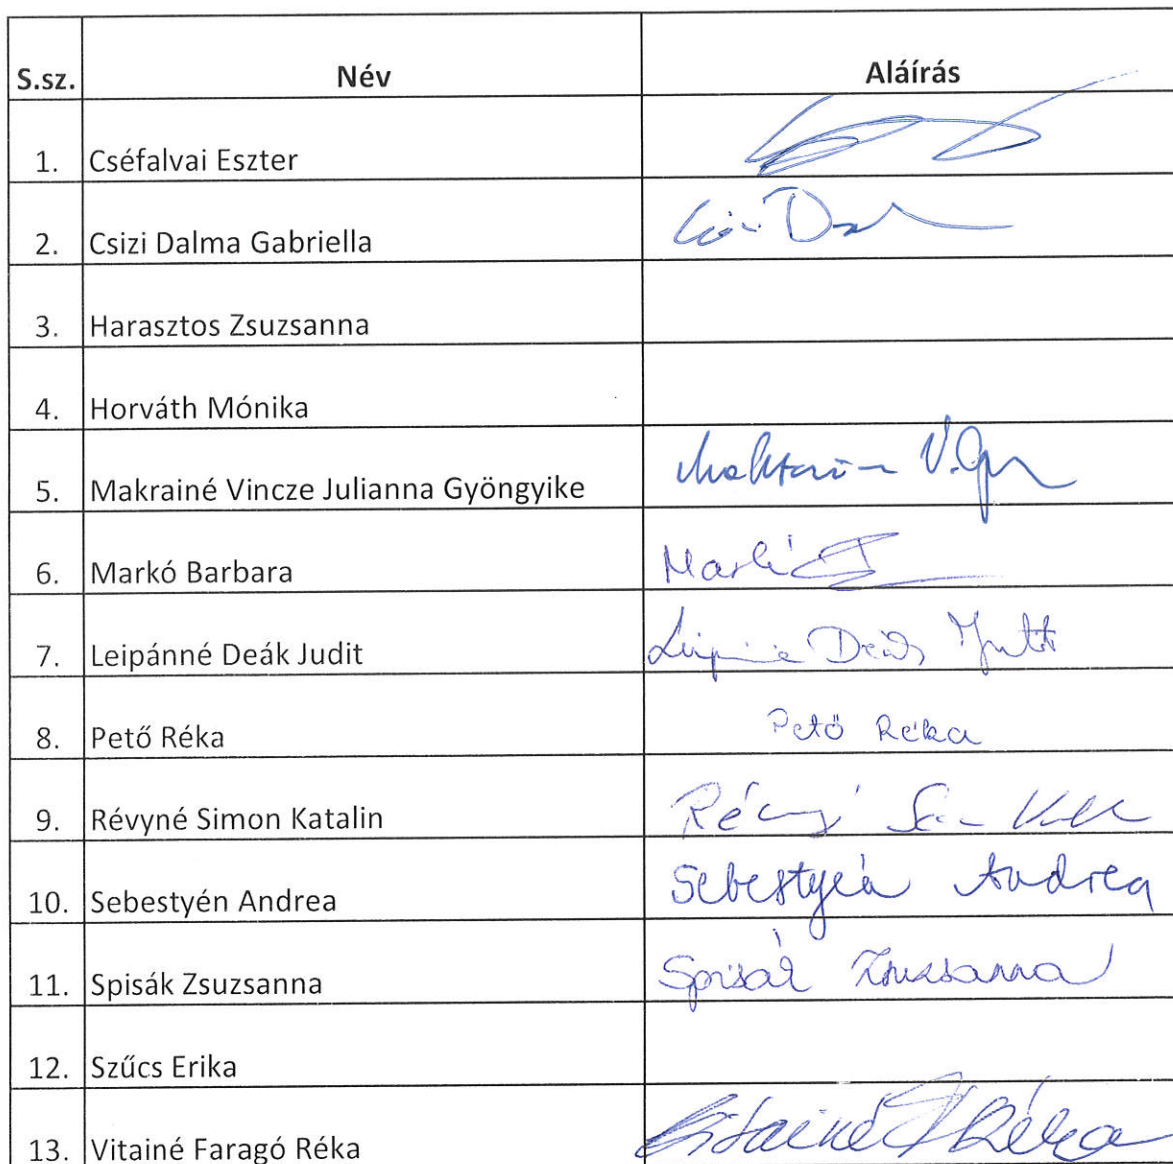 S.sz. Név Aláírás
1. Cséfalvai Eszter
2. Csizi Dalma Gabriella
3. Harasztos Zsuzsanna
4. Horváth Mónika
5. Makrainé Vincze Julianna Gyöngyike
6. Markó Barbara
7. Leipánné Deák Judit
8. Pető Réka Pető Réka
9. Révyné Simon Katalin
10. Sebestyén Andrea Sebestyén Andrea
11. Spisák Zsuzsanna Spisák Zsuzsanna
12. Szűcs Erika
13. Vitainé Faragó Réka Vitainé F Réka